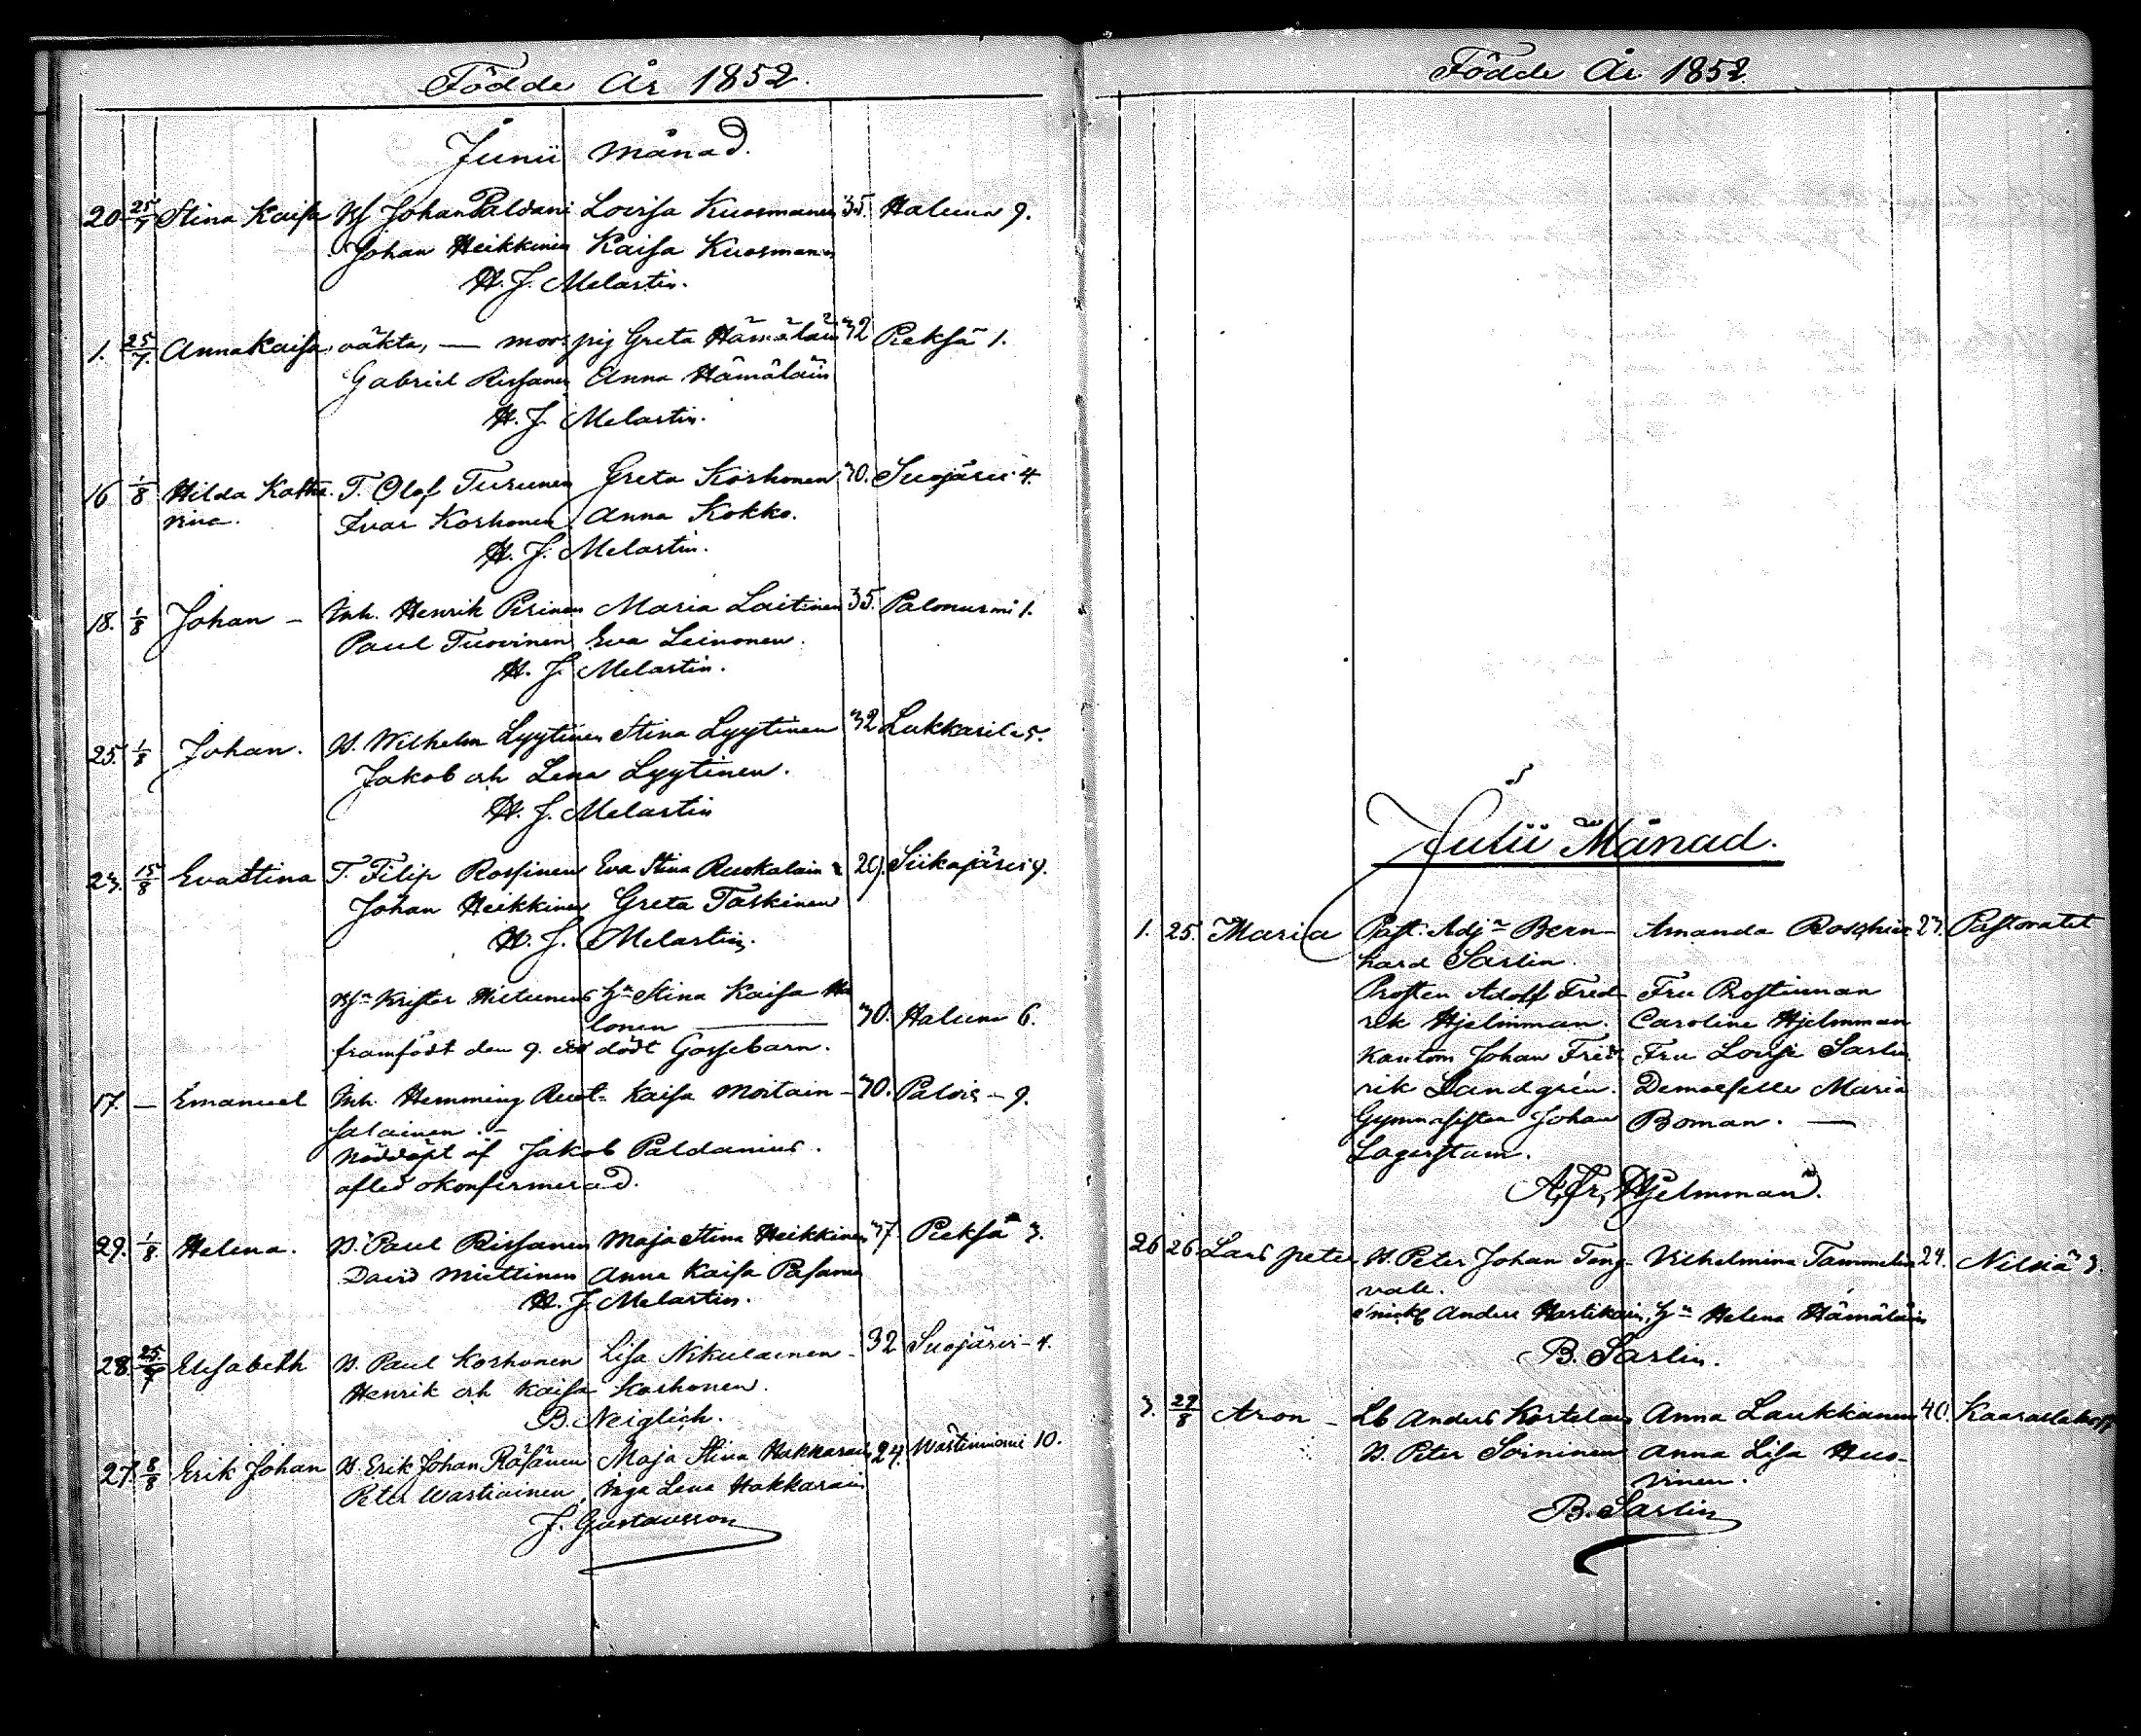 Födde År 1852.
Junii månad.
20 25/7 Stina Kaisa Bf Johan Paldani Lovisa Kuosmanen 35. Haluna 9.
Johan Heikkinen Kaisa Kuosmanen
H. J. Melartin.
1. 25/7. Anna Kaisa, oäkta, — mor: pig Greta Hämäläin 32 Pieksä 1.
Gabriel Rissanen Anna Hämäläin
H. J. Melartin.
16 1/8 Hilda Katha- T. Olof Turunen Greta Korhonen 30. Suojärvi 4.
rina. Ivar Korhonen Anna Kokko.
H. J. Melartin.
18. 1/8 Johan – Inh. Henrik Pirinen Maria Laitinen 35. Palonurmi 1.
Paul Tuovinen Eva Leinonen.
H. J. Melartin.
25. 1/8 Johan. B. Wilhelm Lyytinen Stina Lyytinen 32 Lukkarila 5.
Jakob och Lena Lyytinen.
H. J. Melartin
23. 15/8 Eva Stina T. Filip Rossinen Eva Stina Ruokalain 29. Siikajärvi 9.
Johan Heikkinen Greta Taskinen
H. J. Melartin.
Bfn Krister Hirtunens Hn Stina Kaisa Ha
lonen — 30. Haluna 6.
framfödt den 9. ett dödt Gossebarn.
17. — Emanuel Inh. Hemming Ruot- Kaisa Moilain – 30. Palois – 9.
salainen. –
Nöddöpt af Jakob Paldanius.
afled okonfirmerad.
29. 1/8 Helena. B. Paul Rissanen Maja Stina Heikkinen 37. Pieksä 3.
David Miettinen Anna Kaisa Pasanen
H. J. Melartin.
28. 25/7 Elisabeth B. Paul Korhonen Lisa Nikulainen – 32 Suojärvi – 4.
Henrik och Kaisa Korhonen.
B. Neiglich.
27. 8/8 Erik Johan B. Erik Johan Räsänen Maja Stina Hakkarain 24. Wastimiomi 10.
Peter Wartiainen, Inga Lena Hakkarain
J. Gustavsson
Födde År 1852
Julii Månad.
1. 25. Maria Past. Adjn Bern- Amanda Roschier 23. Pastoratet
hard Sarlin.
Prosten Adolf Fred- Fru Prostinnan
rik Hjelmman. Caroline Hjelmman
Kantorn Johan Fred- Fru Lovise Sarlin
rik Landgrén. Demoiselle Maria
Gymnasisten Johan Boman. —
Lagerstam.
A. Fr. Hjelmman.
26 26 Lars Peter B. Peter Johan Teng- Vilhelmina Tammelin 24. Nilsiä 3.
vall.
Snick Anders Hartikain, Hn Helena Hämäläin
B. Sarlin.
3. 29/8 Aron – Lb Anders Kortelain Anna Laukkanen 40. Kaaraslahti
B. Peter Soininen Anna Lisa Huo-
vinen.
B. Sarlin